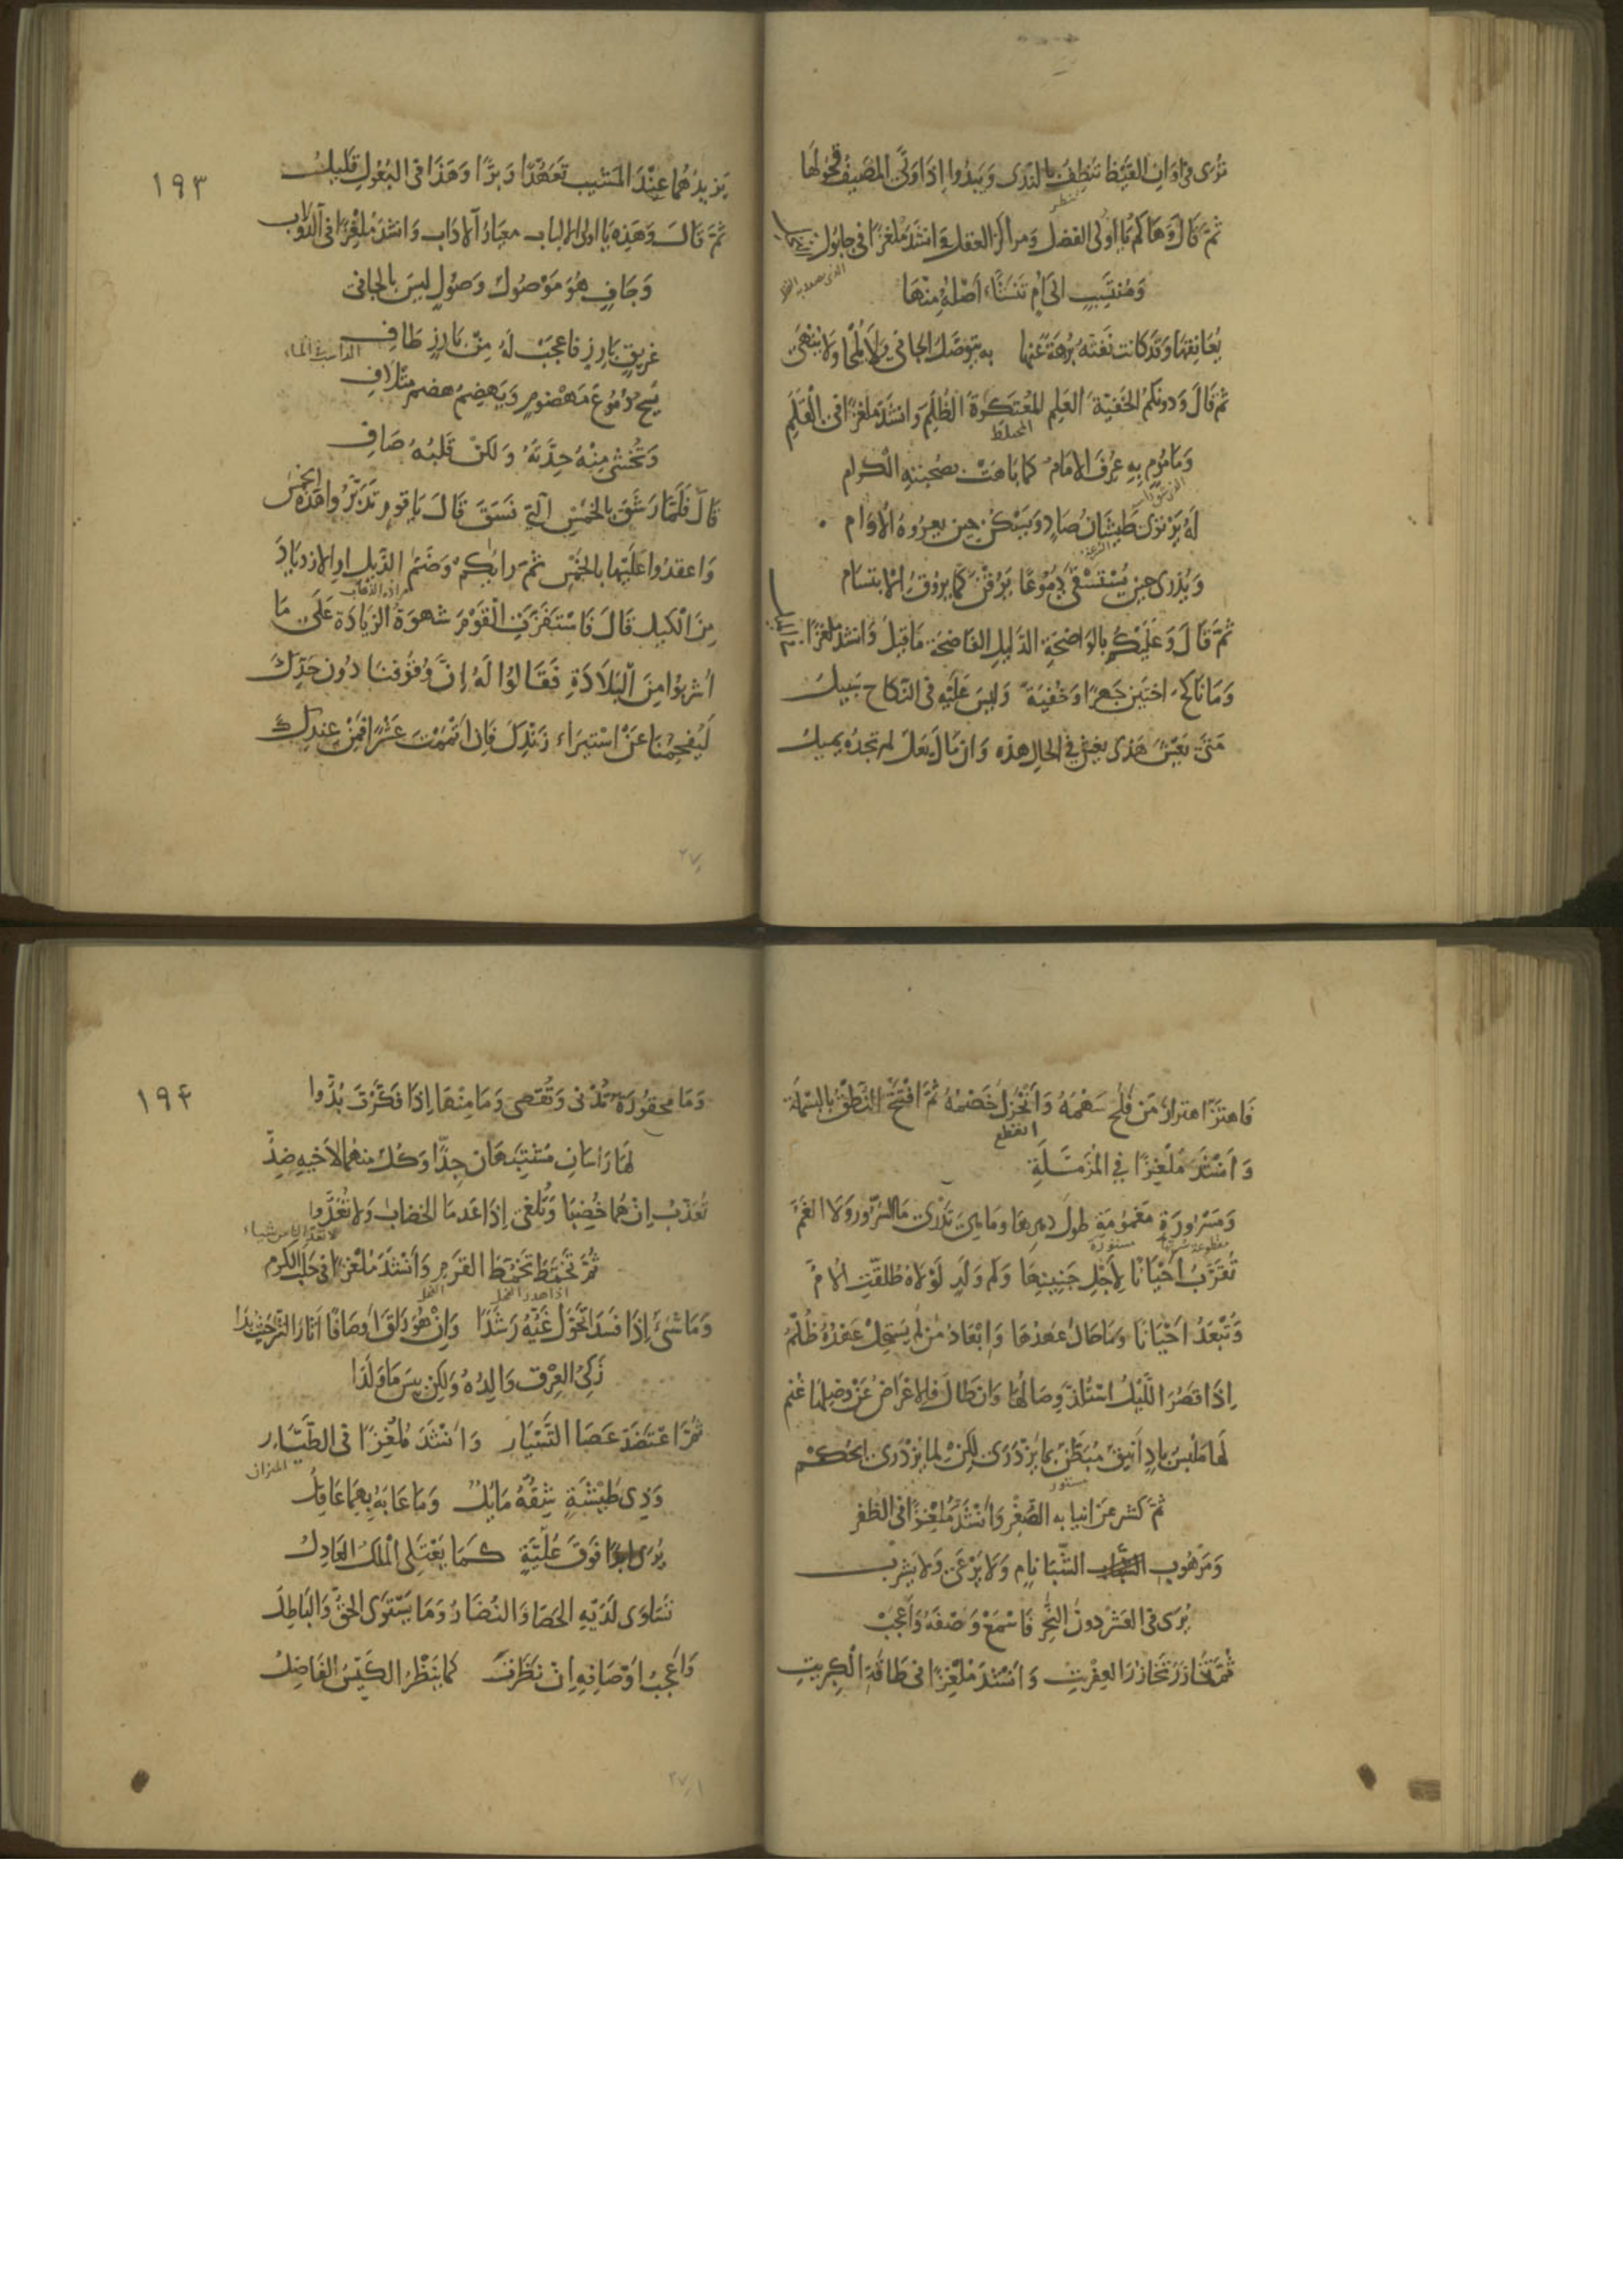 تُرَى فى اَوَانِ القَيْظِ تَنْظِفُ بالنَدَى وَيَبْدُوا اِذَا وَلَّى المَصِيفُ قُحُولُهَا
ثمَّ قَالَ وَهَاكُمْ يَا اُولى الفضل وَمراكز العقل وَانشَدَ مُلْغِزًا فى حابُول
وَمُنْتَسِبٍ الى اُمٍّ تَنَشَّاءَ اَصْلُهُ مِنْهَا
يُعَانِقُهَا وَقَد كانت نَفَتْهُ بُرْهَةً عَنْهَا به يتوصّل الجانى وَلَا يُلْحَا وَلَا يُنْهَى
ثم قالَ وَدونكم الخفيّة العَلم المُعتَكرةَ الظُّلَم وَانشَدَ مُلغزًا فى الْقَلَمِ
المختلط
وَمَامُومٍ بِهِ عُرِفَ الامَامُ كما بَاهَتْ بصُحبَتِهِ الكرام
لَهُ اِذ يَرْتوى طَيشَانُ صَادٍ وَيَسْكُن حين يعروهُ الاُوَام
وَيُذرى حين يُسْتَسْقَى دُمُوعًا يَرُقْنَ كَمَا يروُقُ الابتسَام
ثمَّ قالَ وَعَلَيْكُم بالوَاضحَةِ الدَّليل الفَاضحَة مَا قيلَ وَانشدَ مُلغزًا
وَمَا نَاكحٌ اختَين جَهرًا وَخُفيَةً وَليسَ عَلَيْهِ فى النكاح سَبيلُ
مَتى يَغْشَ هَذى يَغشَ فى الحال هذه وَان مَالَ بَعلٌ لم تجدهُ يميلُ
١٩٣
يَزيدُهُما عِنْدَ المَشيب تَعَهُّدًا وَبرًّا وَهَذَا فى البُعُولِ قَليلُ
ثمَّ قَالَ وَهَذِهِ يَا اولى الالباب معيَارُ الاٰدَاب وَانشَدَ مُلْغِزًا فى الدُّولاب
وَجَافٍ هُوَ مَوْصُولٌ وَصُولٍ ليسَ بالجافى
غريق بَارِزٍ فاعجَبْ لَهُ مِنْ بَارِزٍ طَافِ
يَسُحُّ دُمُوعَ مَهضومٍ وَيَهضِمُ هضمَ متْلَافِ
وَتُخشى مِنْهُ حِدَّتهُ وَلكنْ قَلبُهُ صَافِ
قالَ فَلَمّا رَشَقَ بالخَمْسِ التى نَسَقَ قَالَ يَا قوم تَدَبَّرُوا هَذهِ الخَمْسَ
وَاعقدُوا عَلَيْهَا بالخَمْسِ ثمَّ رَايَكُم وَضَمَّ الذيل او الازديَادَ
مِنَ الْكَيلِ قَالَ فَاسْتَفَزَّتِ الْقَوْمَ شهوَة الزيَادَة عَلَى مَا
اُشربُوا مِنَ الْبَلَادَةِ فَقَالُوا لَهُ اِنَّ وُقُوفَنَا دُون حَدِّكَ
لَيُفحِمُنَا عَنْ اسْتيرَاء زَنْدِكَ فَاِن اَتْمَمْتَ عَشْرًا فَمِنْ عِندِكَ
فَاهتَزَّ اهتزازَ مَن فَلَجَ سَهْمُهُ وَانخزَلَ خَصْمُهُ ثمَّ افْتَتَحَ النُّطْقَ بالبسمَلَة
انقطع
وَاَنشَدَ مُلْغِزًا فى المُزَمَّلَةِ
وَمَسْرُورَةٍ مَغْمُومَةٍ طول دهرهَا وَمَا هِىَ تَدْرى مَا السُرورُ وَلَا الغَمُّ
تُقَرَّبُ اَحْيَانًا لاَجْلِ جَنِينِهَا وَكَم وَلَدٍ لَوْلَاهُ طُلّقَتِ الْاُمُّ
وَتُبْعَدُ احْيَانًا وَمَا حَالَ عهْدُهَا وَاِبْعَادُ مَن لم يَسْتَحِلْ عَهْدُهُ ظُلْمُ
اِذَا قَصُرَ اللّيْلُ اسْتُلِذَّ وِصَالُهَا وَان طَالَ فَالاِعْرَاضُ عَنْ وَصْلِهَا غُنْمُ
لَهَا مَلْبَسٌ بَادٍ اَنيقٌ مُبَطَّنٌ بمَا يُزْدَرَى لكنْ لما يُزْدَرَى الحُكْم
ثمّ كَشَرَ عَن انيابه الصُّفْر وَاَنْشَدَ مُلْغِزًا فى الظفر
وَمَرْهُوبِ الشَّبَا نامٍ وَلَا يَرْعَى وَلَا يَشرَبْ
يُرَى فى العَشْر دونَ النَّحْرِ فَاسْمَعْ وَصْفَهُ وَاعْجَبْ
ثُمَّ تَخَازَرَ تَخَازُرَ العِفْريتِ وَاَنْشَدَ مُلْغِزًا فى طَاقَةِ الْكِبْرِيتِ
١٩٤
وَمَا محقُورَةٌ تُدْنى وَتُقصى وَمَا مِنْهَا اِذَا فَكَّرْتَ بُدُّوا
لَهَا رَاسَانِ مُشْتَبِهَانِ جِدًّا وَكُلٌّ منهُمَا لاَخيهِ ضِدُّ
تُعَذَّبُ اِنْ هُمَا خُضِبَا وَتُلغى اِذَا عَدمَا الخضَابَ وَلَا تُعَدُّوا
ثُمَّ تَخَمَّطَ تَخَمُّطَ القَرْم وَاَنْشَدَ مُلْغِزًا فى حَلَبِ الكَرْمِ
وَمَا شَىْءٌ اِذَا فَسَدَا تَحَوَّلَ غَيُّهُ رَشَدًا وَاِنْ هُوَ رَاقَ اَوصَافًا اَثَارَ الشَّرَّ حَيْثُ بَدَا
زَكِىُّ العِرْقِ وَالِدُهُ وَلَكِن بِئسَ مَا وَلَدَا
ثُمَّ اعْتَضَدَ عَصَا التَّسْيَارِ وَاَنْشَدَ مُلْغِزًا فى الطَّيَّارِ
الميزان
وَذِى طَيْشَةٍ شِقُّهُ مَايلٌ وَمَا عَابَهُ بِهِمَا عَاقِلُ
يُرَى ابدًا فَوقَ عُلِّيَّةٍ كَمَا يَعْتَلِى المَلِكُ العَادِلُ
تَسَاوَى لَدَيْهِ الحَصَا وَالنُّضَارُ وَمَا يَسْتَوى الحَقُّ وَالبَاطِلُ
وَاَعْجَبُ اَوْصَافِهِ اِنْ نَظَرْتَ كمَا يَنظُرُ الكَيّسُ الفَاضِلُ